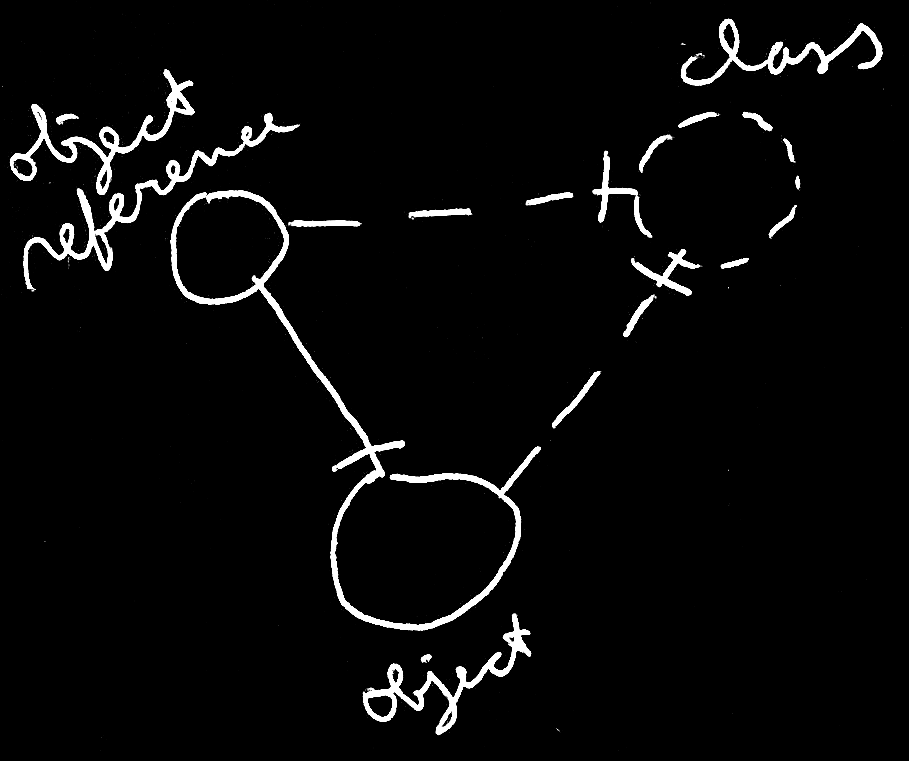 object
reference
class
object